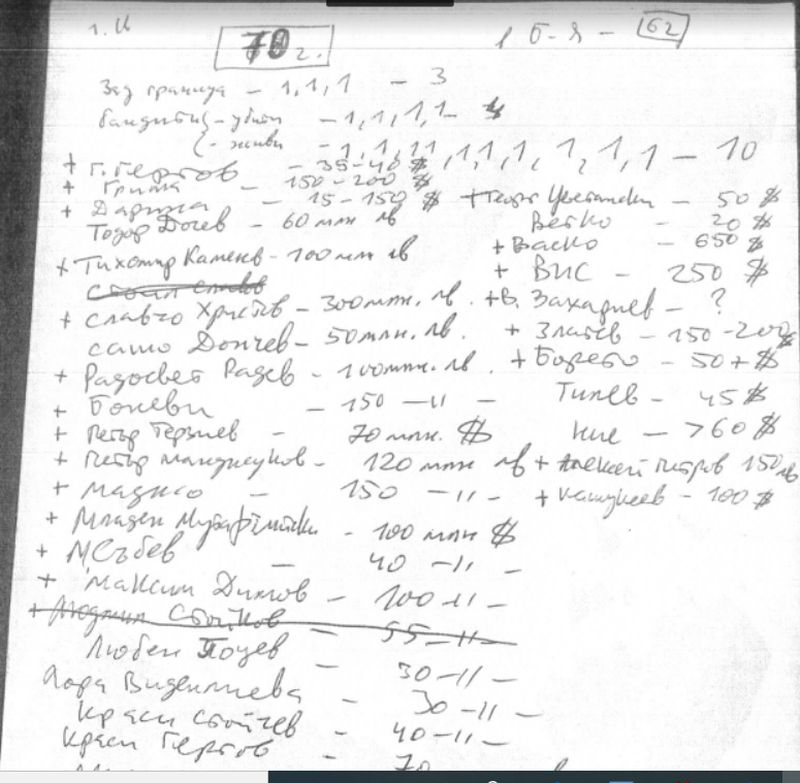 70 г.
1 Б-я - 62
Зад граница - 1,1,1 - 3
бандити - убити - 1,1,1,1 - 4
- живи - 1,1,11,11,1,1,1,1 - 10
+ Г. Гергов - 35-40 $
+ Гриша - 150-200 $
+ Дарина - 15-150 $
Тодор Дочев - 60 млн лв
+ Тихомир Каменов - 100 млн лв
+ Славчо Христов - 300 млн. лв.
Сашо Дончев - 50 млн. лв.
+ Радосвет Радев - 100 млн. лв.
+ Боневи - 150 -11-
+ Петър Терзиев - 70 млн. $
+ Петър Манджуков - 120 млн лв
+ Маджо - 150 -11-
+ Младен Мутафчийски - 100 млн $
+ МСъбев - 40 -11-
+ Максим Димов - 100 -11-
+ Людмил Стойков - 55 -11-
Любен Поцев - 30 -11-
Лора Виденлиева - 30 -11-
Краси Стойчев - 40 -11-
Краси Гергов - 70
+ Георг Цветански - 50 $
Ветко - 20 $
+ Васко - 650 $
+ ВИС - 250 $
+ В. Захариев - ?
+ Златев - 150-200 $
+ Борето - 50+ $
Тилев - 45 $
Ние - >60 $
+ Алексей Петров 150 лв
+ - 100 $